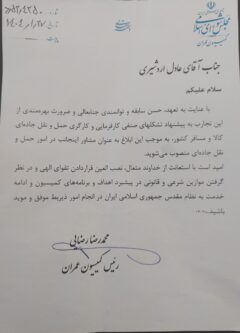 مجلس شورای اسلامی
کمیسیون عمران
جناب آقای عادل اردشیری
سلام علیکم
با عنایت به تعهد، حسن سابقه و توانمندی جنابعالی و ضرورت بهره‌مندی از
این تجارب به پیشنهاد تشکلهای صنفی کارفرمایی و کارگری حمل و نقل جاده‌ای
کالا و مسافر کشور، به موجب این ابلاغ به عنوان مشاور اینجانب در امور حمل و
نقل جاده‌ای منصوب می‌شوید.
امید است با استعانت از خداوند متعال، نصب العین قراردادن تقوای الهی و در نظر
گرفتن موازین شرعی و قانونی در پیشبرد اهداف و برنامه‌های کمیسیون و ادامه
خدمت به نظام مقدس جمهوری اسلامی ایران در انجام امور ذیربط موفق و موید
باشید.
محمدرضا رضایی
رئیس کمیسیون عمران